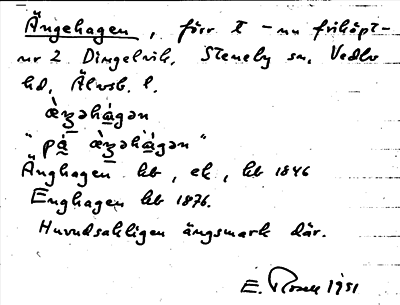 Ängehagen, förr t - nu friköpt-
nr 2 Dingelvik, Steneby sn, Vedbo
hd, Älvsb. l.
"på
Änghagen kb, ek, kb 1846
Enghagen kb 1876.
Huvudsakligen ängsmark där.
E. Rosell 1951